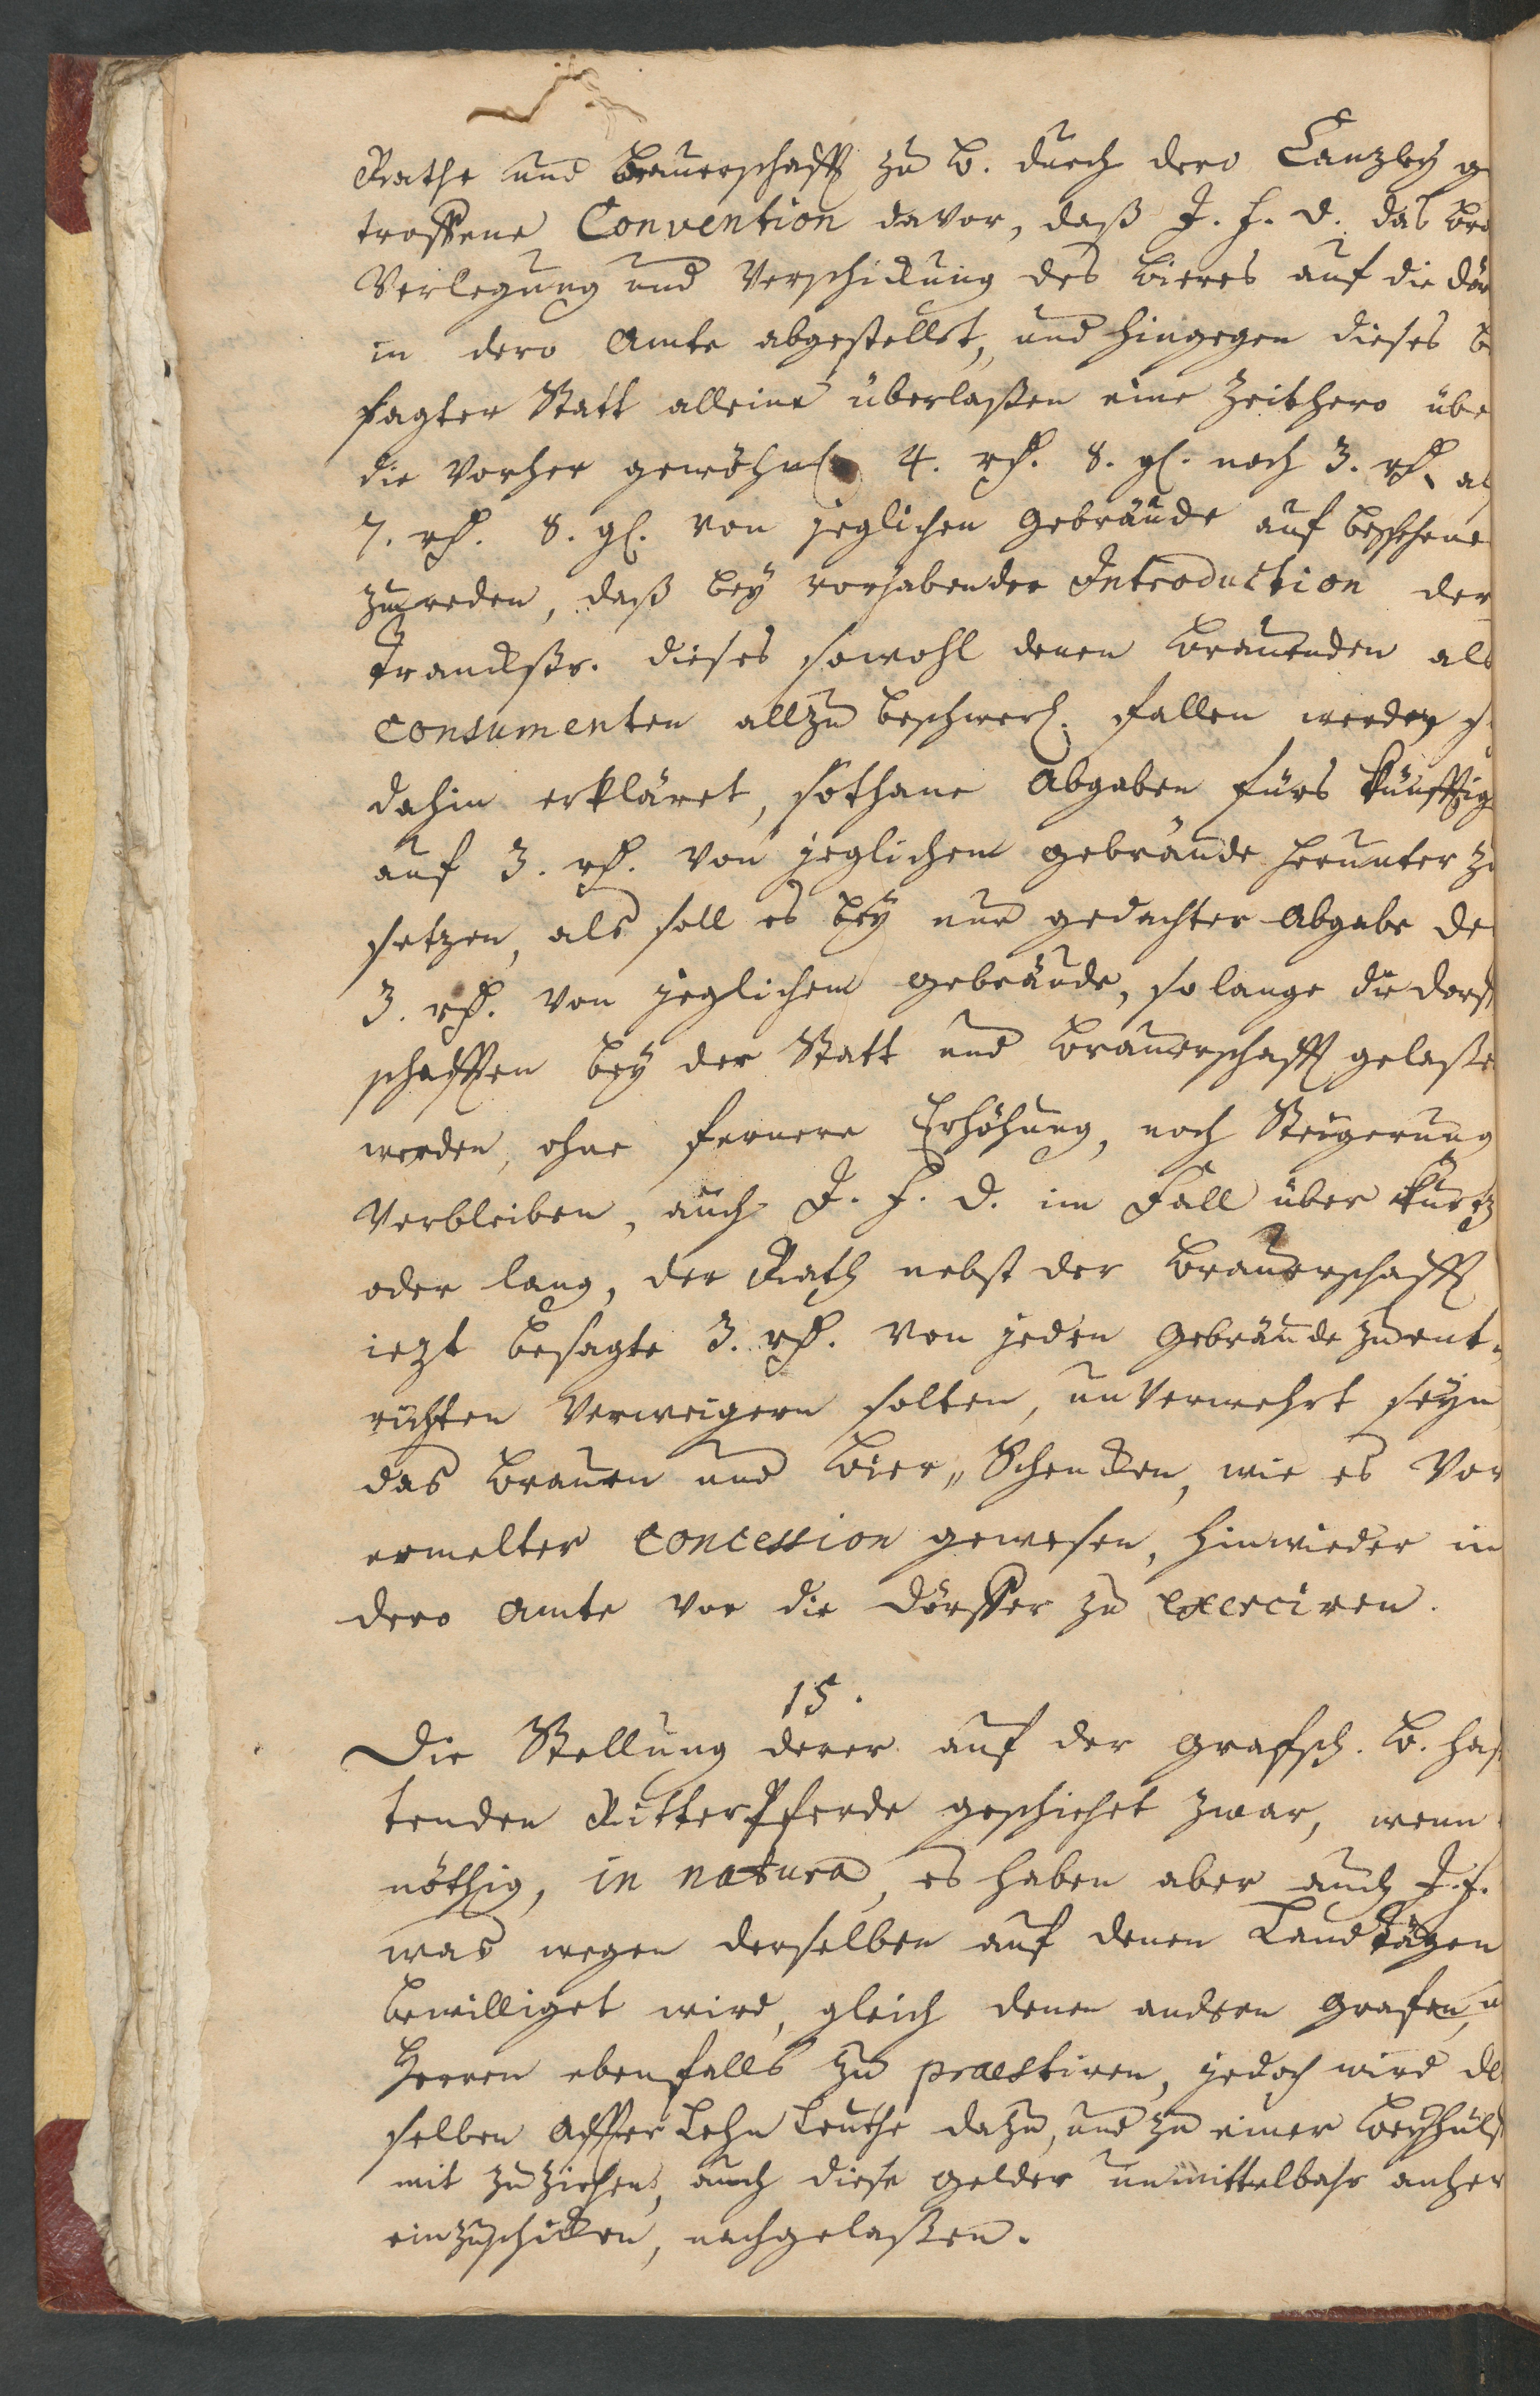 Rathe und Brauerschafft zu B. durch dero Canzley g
troffene Convention davor, daß J. F. D. das Bra
Verlegung und Verschickung des Bieres auf die Dör
in dero Amte abgestellet, und hingegen dieses b
sagter Statt alleine überlaßen eine Zeithero übe
die vorher gewöhnl. 4. rh. 8. gl. noch 3. rh. al
7. rh. 8. gl. von jeglichen Gebräude auf beschehene
Zureden, daß bey vorhabender Introduction der
Trancksr. dieses sowohl denen Brauenden als
Consumenten allzu beschwerl. fallen werde,
dahin erkläret, sothane Abgaben fürs künfftig
auf 3. rh. von jeglichem Gebräude herunter zu
setzen, als soll es bey nur gedachter Abgabe de
3. rh. von jeglichem Gebräude, so lange die Dorf
schafften bey der Statt und Brauerschafft gelaße
werden, ohne fernere Erhöhung, noch Steigerung
verbleiben, auch J. F. D. im Fall über kurtz
oder lang, der Rath nebst der Brauerschafft
iezt besagte 3. rh. von jeden Gebräude zu ent-
richten verweigern solten, unverwehrt seyn
das Brauen und Bier„Schencken, wie es vor
ermelter Concession gewesen, hinwieder in
dero Amte vor die Dörffer zu exerciren.
15.
Die Stellung derer auf der Grafsch. B. haf
tenden Ritter Pferde geschiehet zwar, wenn
nöthig, in natura, es haben aber auch J. F.
was wegen derselben auf denen Landtägen
bewilliget wird, gleich denen andern Grafen, u
Herren ebenfalls zu praestiren, jedoch wird de
selben Affter Lehn Leuthe dazu, und zu einer Beyhülf
mit zu ziehen, auch diese Gelder unmittelbahr anher
einzuschicken, nachgelaßen.